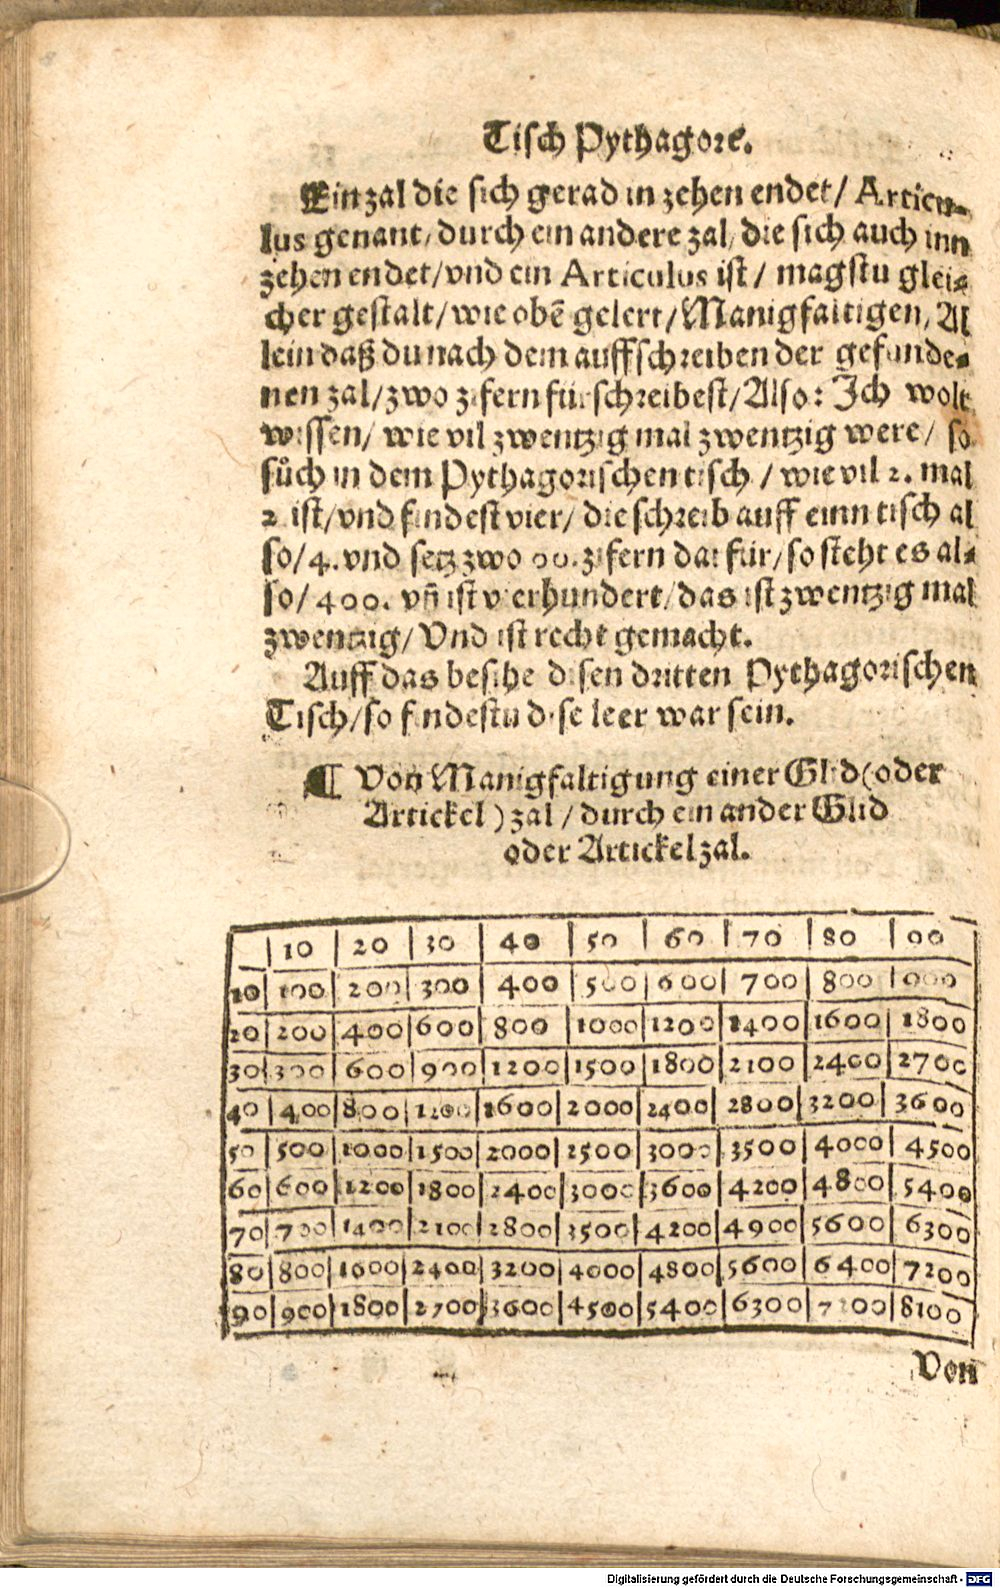 Tisch Pythagore.
Ein zal die sich gerad in zehen endet/ Articu-
lus genant/ durch ein andere zal/ die sich auch inn
zehen endet/ vnd ein Articulus ist/ magstu glei-
cher gestalt/ wie obē gelert/ Manigfaltigen, Al
lein daß du nach dem auffschreiben der gefunde-
nen zal/ zwo zifern fürschreibest/ Also: Ich wolt
wissen/ wie vil zwentzig mal zwentzig were/ so
sůch in dem Pythagorischen tisch/ wie vil 2. mal
2 ist/ vnd findest vier/ die schreib auff einn tisch al
so/ 4. vnd setz zwo 00. zifern darfür/ so steht es al-
so/ 400. vñ ist vierhundert/ das ist zwentzig mal
zwentzig/ Vnd ist recht gemacht.
Auff das besihe disen dritten Pythagorischen
Tisch/ so findestu dise leer war sein.
¶ Von Manigfaltigung einer Glid (oder
Artickel) zal/ durch ein ander Glid
oder Artickel zal.
10 20 30 40 50 60 70 80 90
10 100 200 300 400 500 600 700 800 900
20 200 400 600 800 1000 1200 1400 1600 1800
30 300 600 900 1200 1500 1800 2100 2400 2700
40 400 800 1200 1600 2000 2400 2800 3200 3600
50 500 1000 1500 2000 2500 3000 3500 4000 4500
60 600 1200 1800 2400 3000 3600 4200 4800 5400
70 700 1400 2100 2800 3500 4200 4900 5600 6300
80 800 1600 2400 3200 4000 4800 5600 6400 7200
90 900 1800 2700 3600 4500 5400 6300 7200 8100
Von
Digitalisierung gefördert durch die Deutsche Forschungsgemeinschaft - DFG